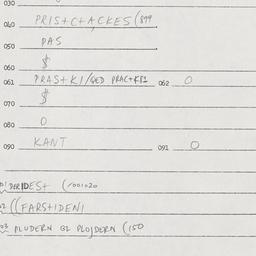 030
040 PRIS+C+ACKES(899
050 PAS
060 $
061 PRAS+KI/GED PRAC+KB1 062 0
070 $
080 0
090 KANT 091 0
01 DERIDES+ (/001020
02 ((FARS+IDENI
03 PLUDERN GZ PLOJDERN (150